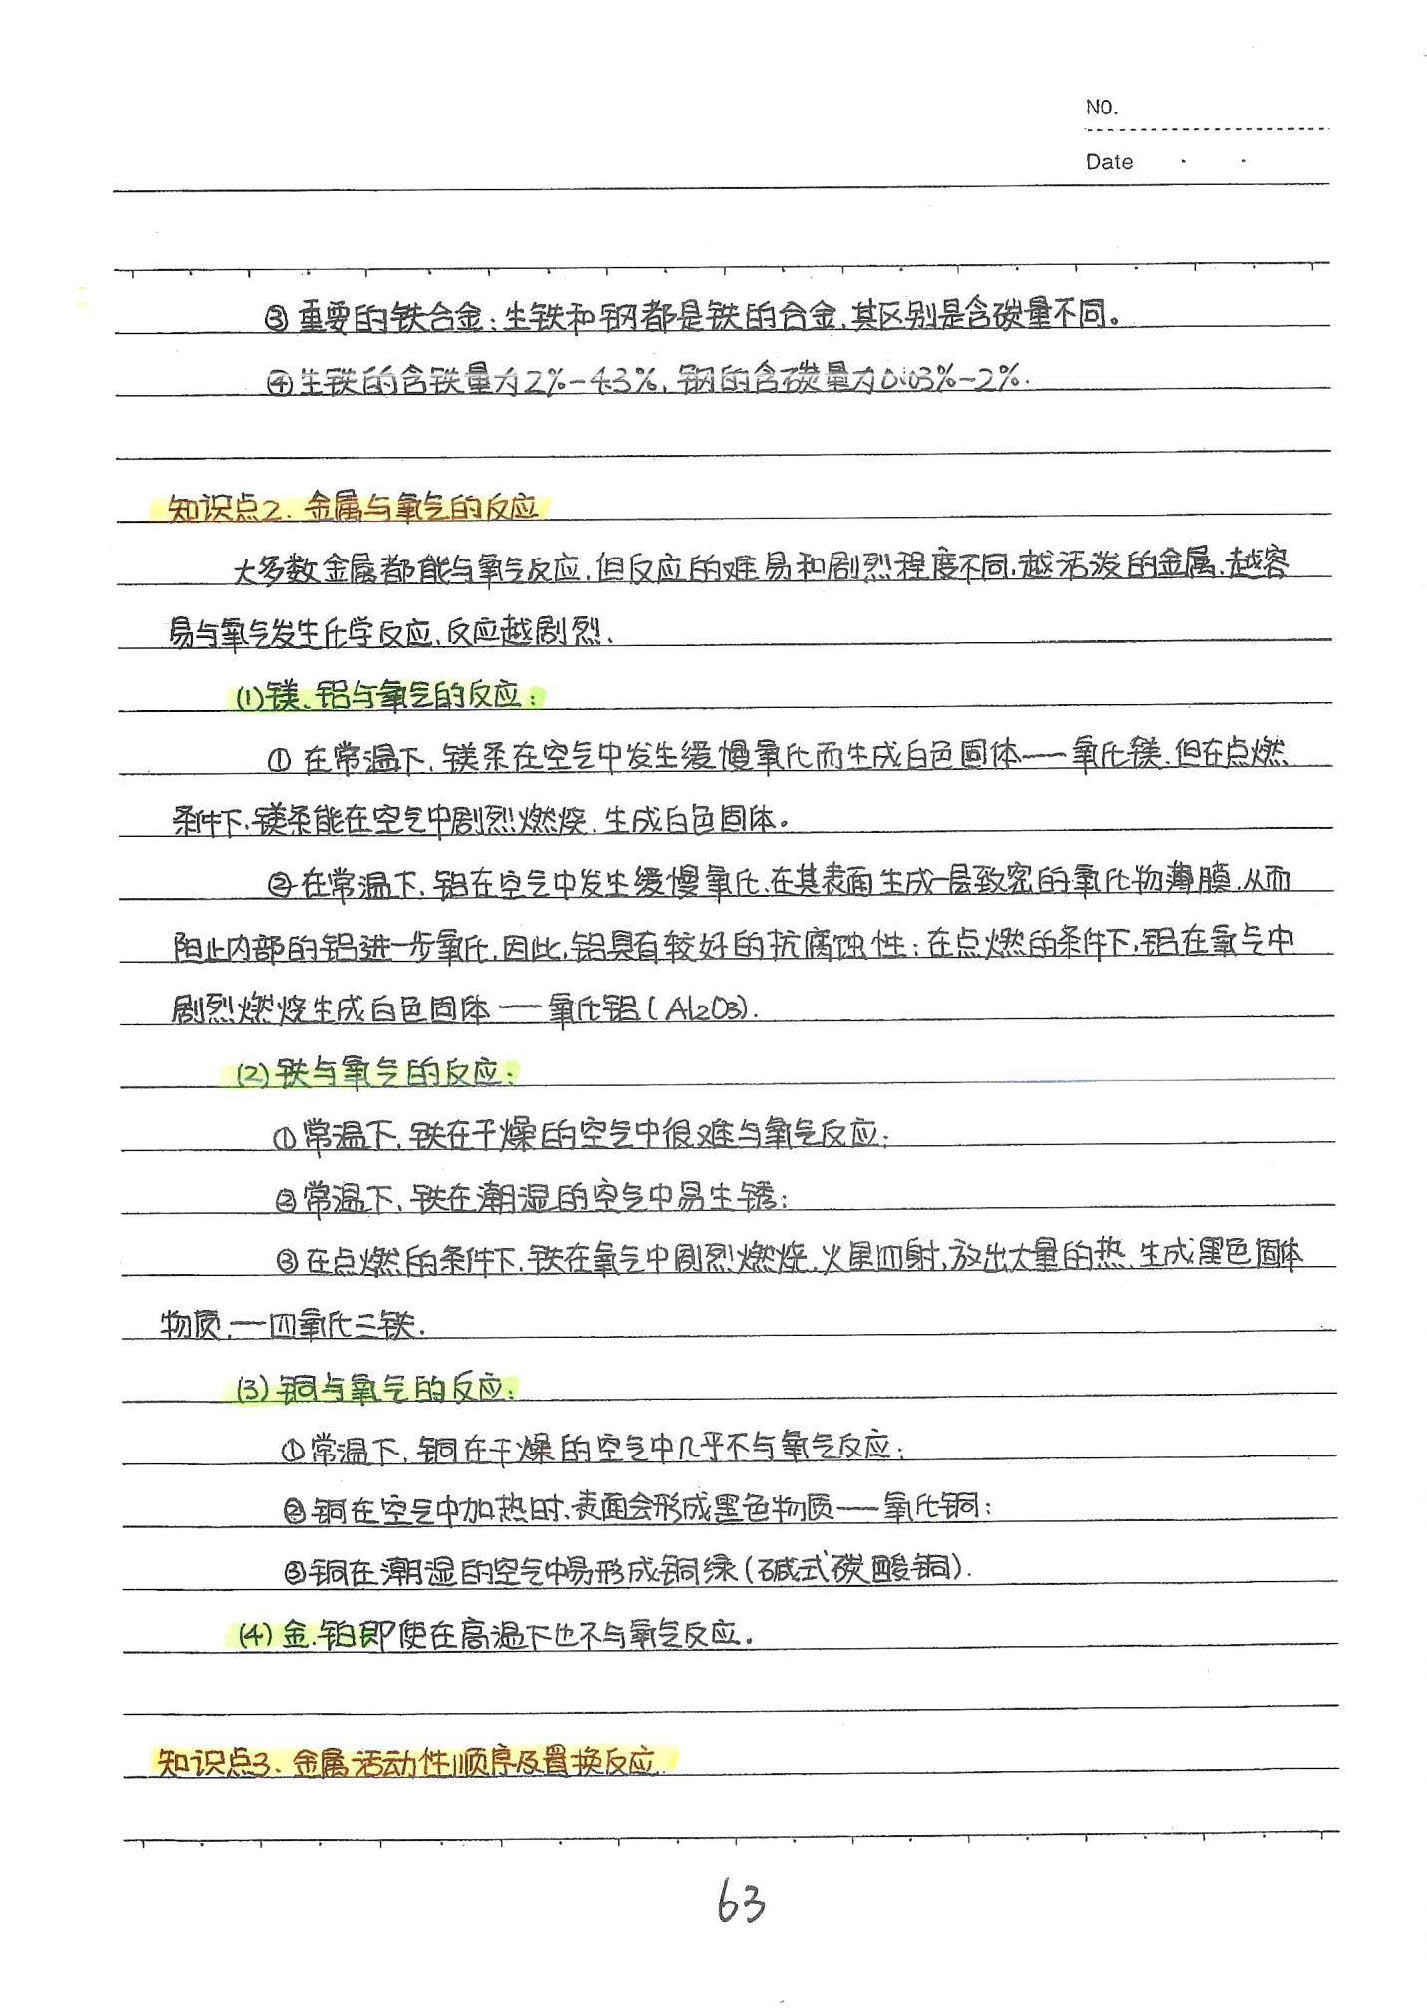 NO.
Date
③重要的铁合金:生铁和钢都是铁的合金,其区别是含碳量不同。
④生铁的含铁量为2%-4.3%,钢的含碳量为0.03%-2%.
知识点2. 金属与氧气的反应
大多数金属都能与氧气反应,但反应的难易和剧烈程度不同,越活泼的金属,越容
易与氧气发生化学反应,反应越剧烈.
(1)镁、铝与氧气的反应:
①在常温下,镁条在空气中发生缓慢氧化而生成白色固体——氧化镁.但在点燃
条件下,镁条能在空气中剧烈燃烧,生成白色固体。
②在常温下,铝在空气中发生缓慢氧化,在其表面生成一层致密的氧化物薄膜,从而
阻止内部的铝进一步氧化,因此,铝具有较好的抗腐蚀性;在点燃的条件下,铝在氧气中
剧烈燃烧生成白色固体——氧化铝(Al2O3).
(2)铁与氧气的反应:
①常温下,铁在干燥的空气中很难与氧气反应;
②常温下,铁在潮湿的空气中易生锈;
③在点燃的条件下,铁在氧气中剧烈燃烧,火星四射,放出大量的热,生成黑色固体
物质,—四氧化三铁.
(3)铜与氧气的反应:
①常温下,铜在干燥的空气中几乎不与氧气反应;
②铜在空气中加热时,表面会形成黑色物质——氧化铜;
③铜在潮湿的空气中易形成铜绿(碱式碳酸铜).
(4)金.铂即使在高温下也不与氧气反应。
知识点3、金属活动性顺序及置换反应.
63